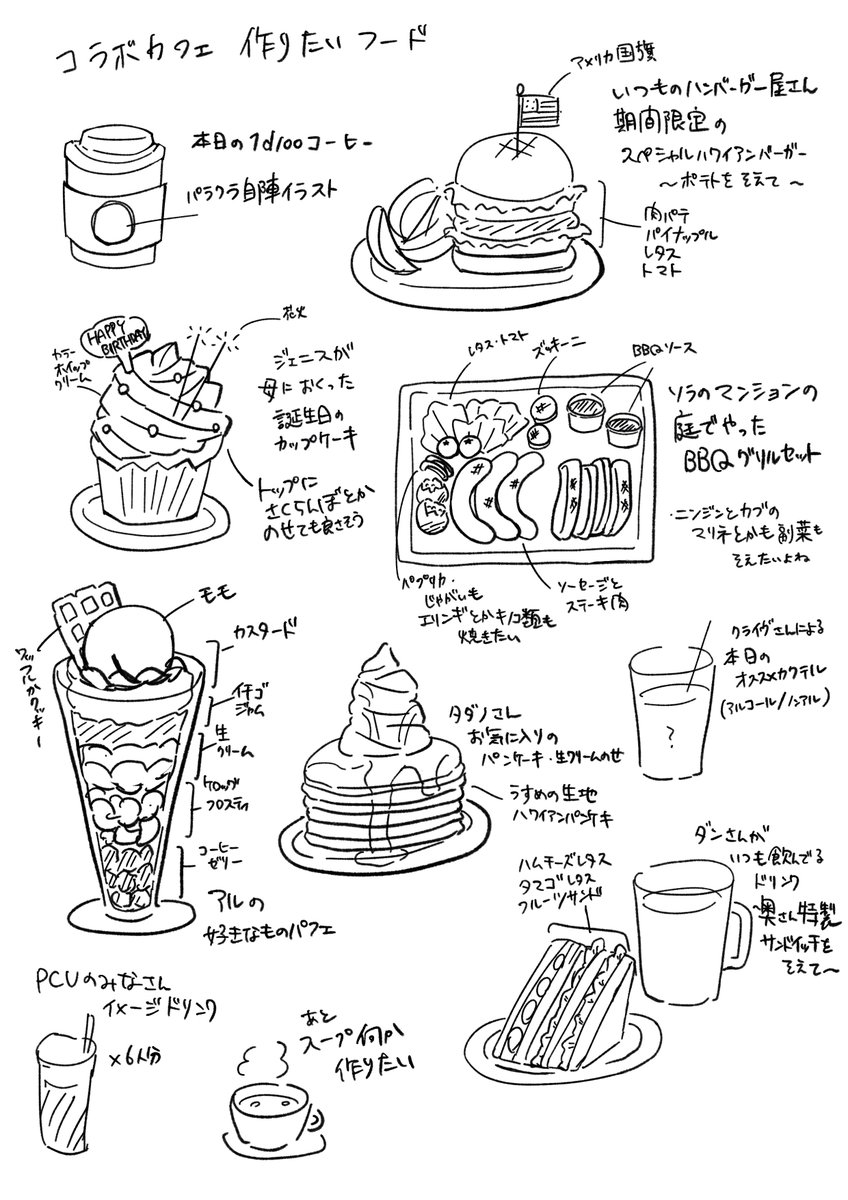 コラボカフェ 作りたいフード
本日の1d100コーヒー
パラクラ自陣イラスト
アメリカ国旗
いつものハンバーガー屋さん
期間限定の
スペシャルハワイアンバーガー
〜ポテトをそえて〜
肉パテ
パイナップル
レタス
トマト
HAPPY
BIRTHDAY
カラー
ホイップ
クリーム
花火
ジェニスが
母におくった
誕生日の
カップケーキ
トップに
さくらんぼとか
のせても良さそう
レタス・トマト
ズッキーニ
BBQソース
ソラのマンションの
庭でやった
BBQグリルセット
・ニンジンとカブの
マリネとかも副菜も
そえたいよね
パプリカ・
じゃがいも
エリンギとかキノコ類も
焼きたい
ソーセージと
ステーキ肉
モモ
ワッフルかクッキー
カスタード
イチゴ
ジャム
生
クリーム
ケロッグ
フロスティ
コーヒー
ゼリー
アルの
好きなものパフェ
タダノさん
お気に入りの
パンケーキ・生クリームのせ
うすめの生地
ハワイアンパンケキ
クライヴさんによる
本日の
オススメカクテル
(アルコール/ノンアル)
?
ダンさんが
いつも飲んでる
ドリンク
〜奥さん特製
サンドイッチを
そえて〜
ハムチーズレタス
タマゴレタス
フルーツサンド
PCUのみなさん
イメージドリンク
×6人分
あと
スープ何か
作りたい